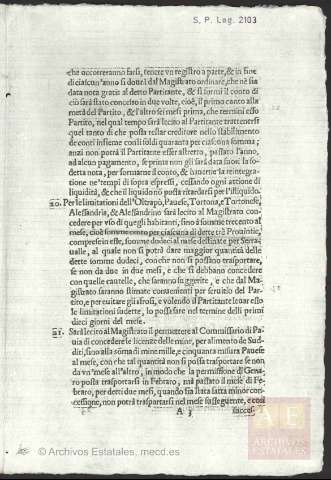 S. P. Leg. 2103
che occorreranno farsi, tenere vn registro a parte, & in fine
di ciascun'anno si douerà dal Magistrato ordinare, che ne sia
data nota gratis al detto Partitante, & si formi il conto di
ciò sarà stato concesso in due volte, cioè, il primo canto alla
metà del Partito, & l'altro sei mesi prima, che termini esso
Partito, nel qual tempo sarà lecito al Partitante trattenersi
quel tanto di che possa restar creditore nello stabilimento
de conti insieme con li soldi quaranta per ciascuna somma;
anzi non potrà il Partitante esser astretto, passato l'anno,
ad alcun pagamento, se prima non gli sarà data fuori la so-
detta nota, per formarne il conto, & hauerne la reintegra-
tione ne' tempi di sopra espressi, cessando ogni attione di
liquidità, & che il liquido no possa ritardarsi per l'illiquido.
20. Per le limitationi dell'Oltrapò, Pauese, Tortona, e Tortonese,
Alessandria, & Alessandrino sarà lecito al Magistrato con-
cedere per vso di quegli habitanti, sino à somme trecento al
mese, cioè somme cento per ciascuna di dette trè Prouintie,
comprese in esse, somme dodeci al mese destinate per Serra-
ualle, al quale non si potrà dare maggior quantità delle
dette somme dodeci, con che non si possino trasportare,
se non da due in due mesi, e che si debbano concedere
con quelle cautelle, che saranno suggerite, e che dal Ma-
gistrato saranno stimate conuenienti per seruitio del Par-
tito, e per euitare gli sfrosi, e volendo il Partitante leuar esso
le limitationi sudette, lo possa fare nel termine delli primi
dieci giorni del mese.
21. Sarà lecito al Magistrato il permettere al Commissario di Pa-
uia di concedere le licenze delle mine, per alimento de Sud-
diti, sino alla sóma di mine mille, e cinquanta misura Pauese
al mese, con che tal quantità non si possa trasportare se non
da vn'mese all'altro, in modo che la permissione di Gena-
ro possa trasportarsi in Febraro, mà passato il mese di Fe-
braro, per detti due mesi, quando sia stata fatta minor con-
cessione, non potrà trasportarsi nel mese susseguente, e così
A 3
succes-
AE
ARCHIVOS
ESTATALES
© Archivos Estatales, mecd.es